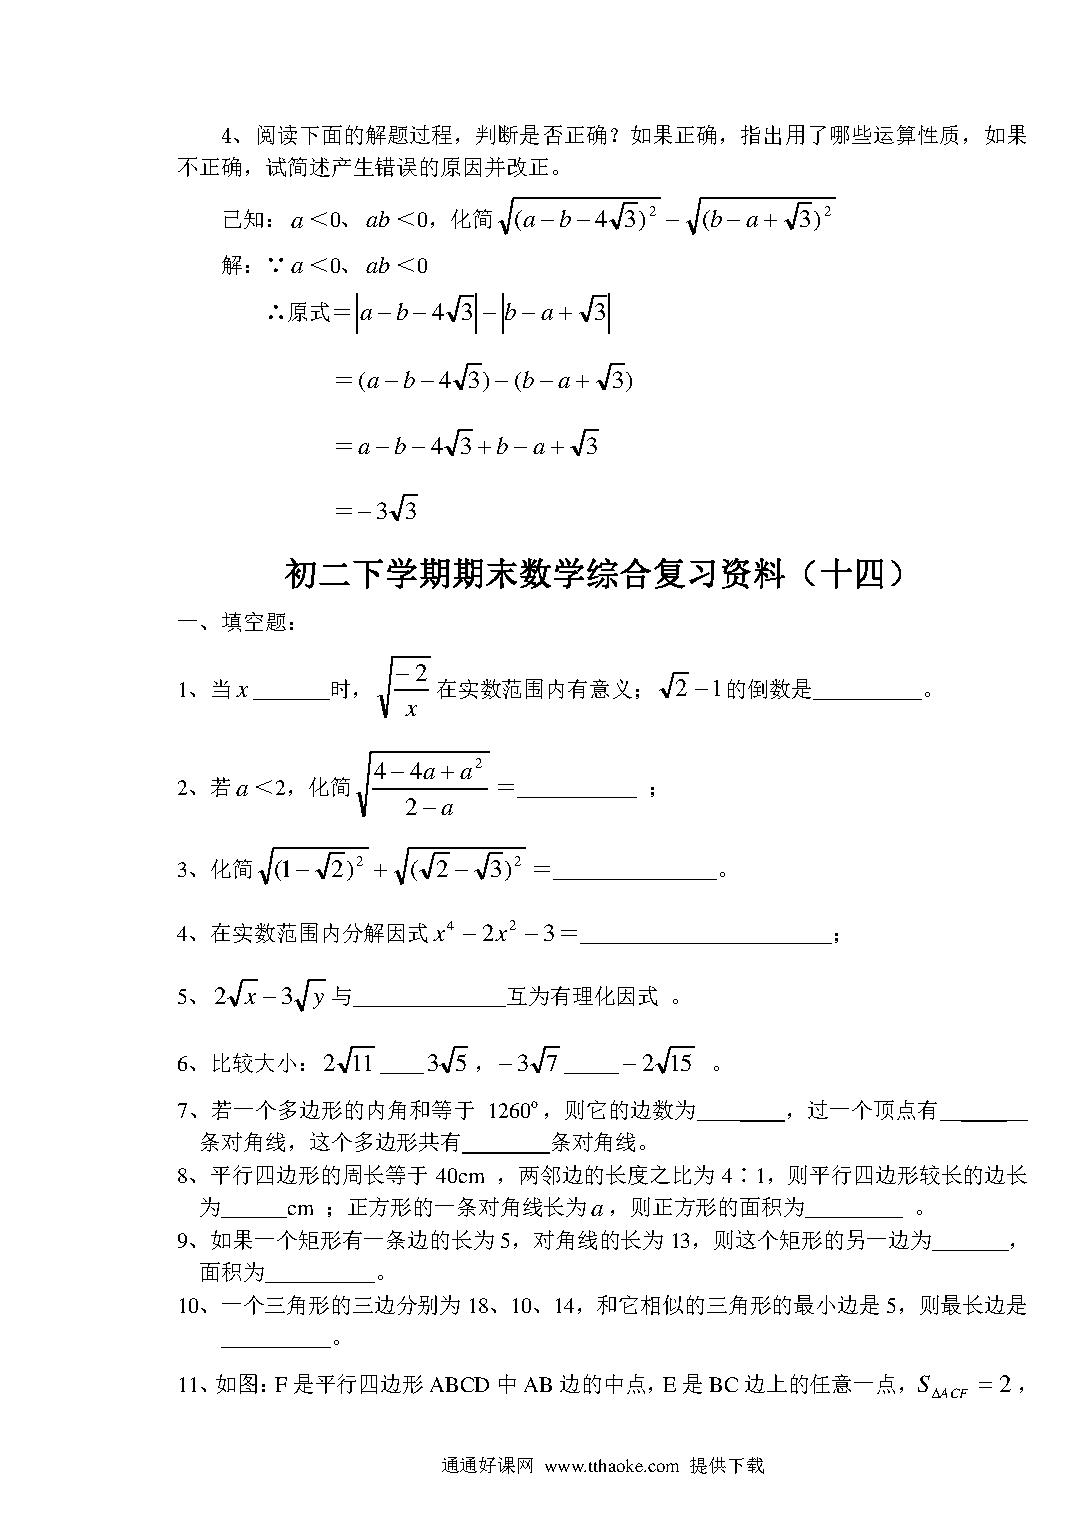 4、阅读下面的解题过程，判断是否正确？如果正确，指出用了哪些运算性质，如果
不正确，试简述产生错误的原因并改正。
己知：a＜0、ab＜0，化简 √(a−b−4√3)² − √(b−a+√3)²
解：∵a＜0、ab＜0
∴原式＝|a−b−4√3|−|b−a+√3|
＝(a−b−4√3)−(b−a+√3)
＝a−b−4√3+b−a+√3
＝−3√3
初二下学期期末数学综合复习资料（十四）
一、填空题：
1、当 x _______时，√(−2/x) 在实数范围内有意义；√2−1的倒数是__________。
2、若 a＜2，化简 √((4−4a+a²)/(2−a)) ＝___________ ；
3、化简 √(1−√2)² + √(√2−√3)² ＝_______________。
4、在实数范围内分解因式 x⁴−2x²−3＝_______________________；
5、2√x−3√y 与______________互为有理化因式 。
6、比较大小：2√11 ____3√5，−3√7 _____−2√15 。
7、若一个多边形的内角和等于 1260º，则它的边数为________，过一个顶点有________
条对角线，这个多边形共有________条对角线。
8、平行四边形的周长等于 40cm ，两邻边的长度之比为 4∶1，则平行四边形较长的边长
为______cm ；正方形的一条对角线长为 a，则正方形的面积为_________ 。
9、如果一个矩形有一条边的长为 5，对角线的长为 13，则这个矩形的另一边为_______，
面积为__________。
10、一个三角形的三边分别为 18、10、14，和它相似的三角形的最小边是 5，则最长边是
__________。
11、如图：F 是平行四边形 ABCD 中 AB 边的中点，E 是 BC 边上的任意一点，S△ACF = 2，
通通好课网 www.tthaoke.com 提供下载